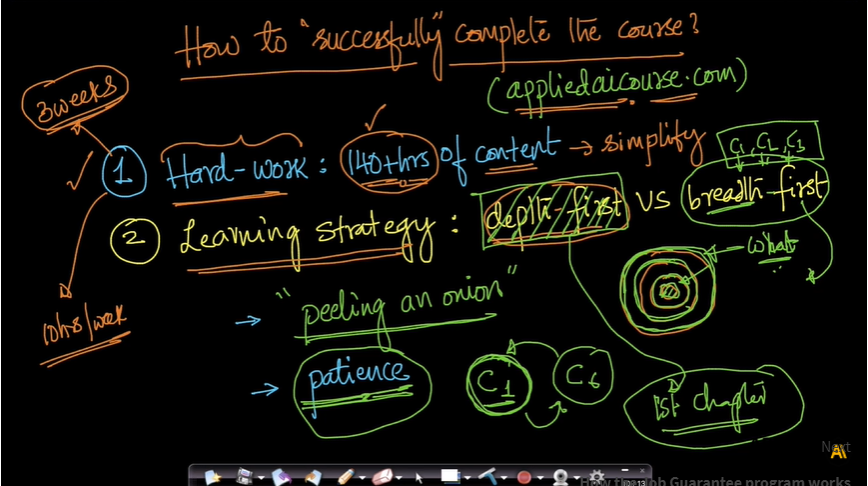 How to "successfully" complete the course?
(appliedaicourse.com)
3 weeks
1 Hard-work : 140+hrs of content → simplify C1, C2, C3
2 Learning strategy : depth-first VS breadth-first
What
10hrs/week
→ "peeling an onion"
→ patience
C1 C6
1st chapter
Next
How the Job Guarantee program works